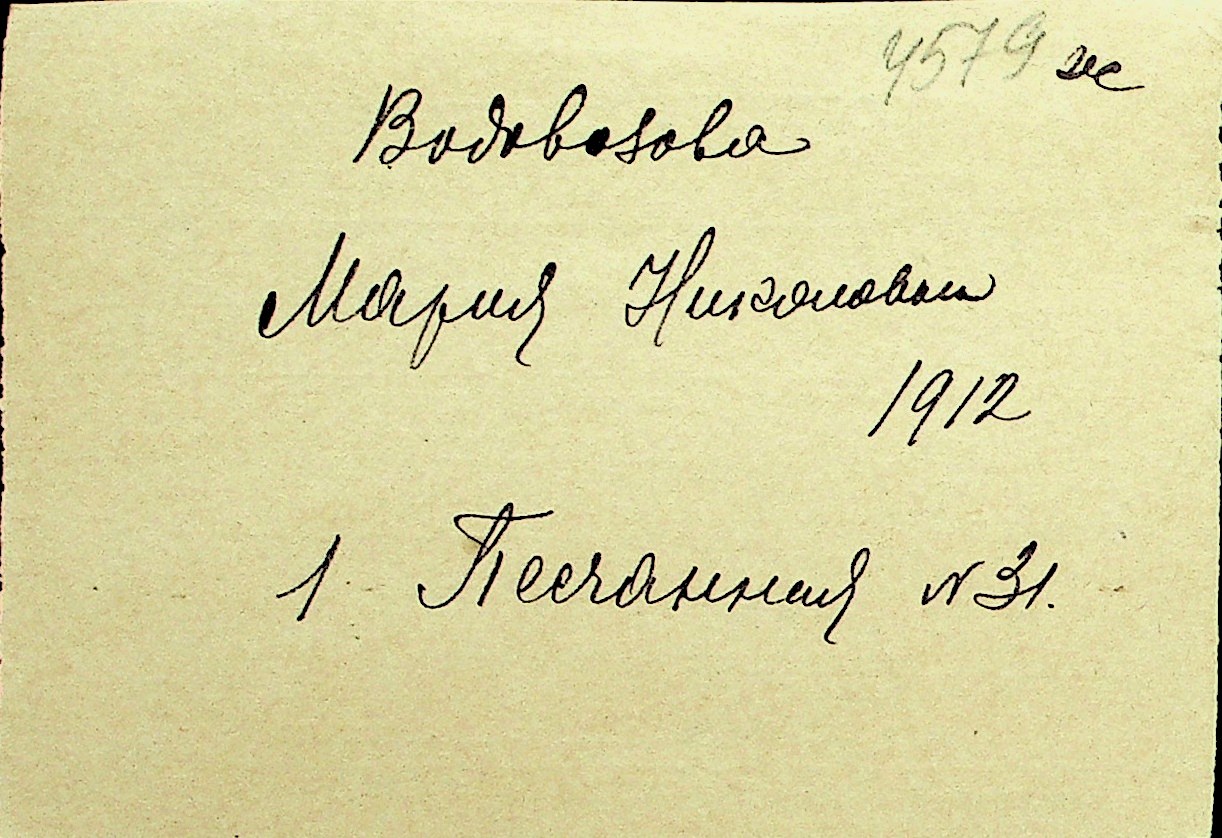 4579 ж
Водовозова
Мария Николаевна
1912
1 Песчанная N 31.